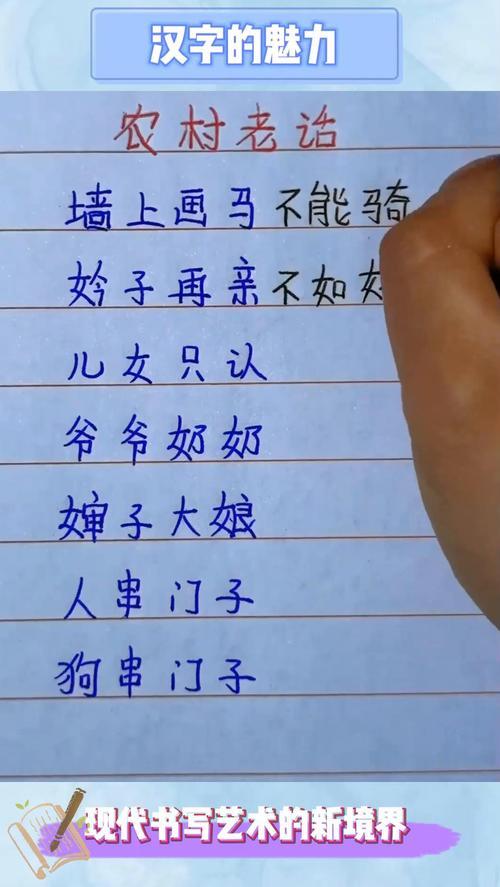 汉字的魅力
农村老话
墙上画马不能骑
妗子再亲不如
儿女只认
爷爷奶奶
婶子大娘
人串门子
狗串门子
现代书写艺术的新境界